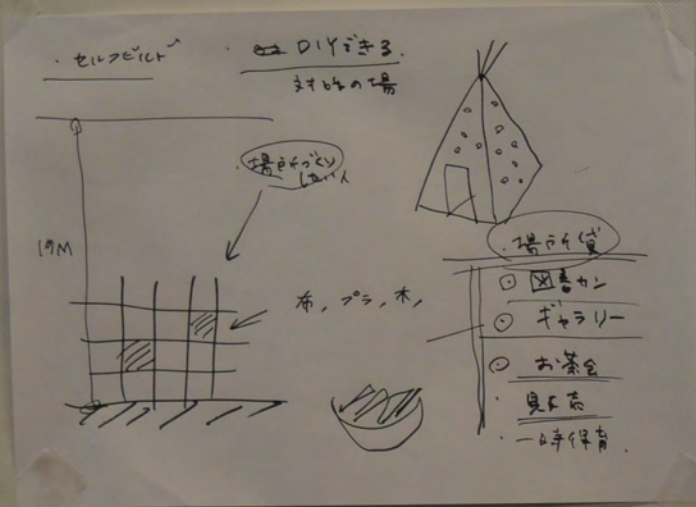 ・セルフビルド
・DIYできる.
対話の場
・場所づくり
したい人
19M
布, プラ, 木,
・場所貸
◎ 図書カン
◎ ギャラリー
◎ お茶会
・見本市
・一時保育.